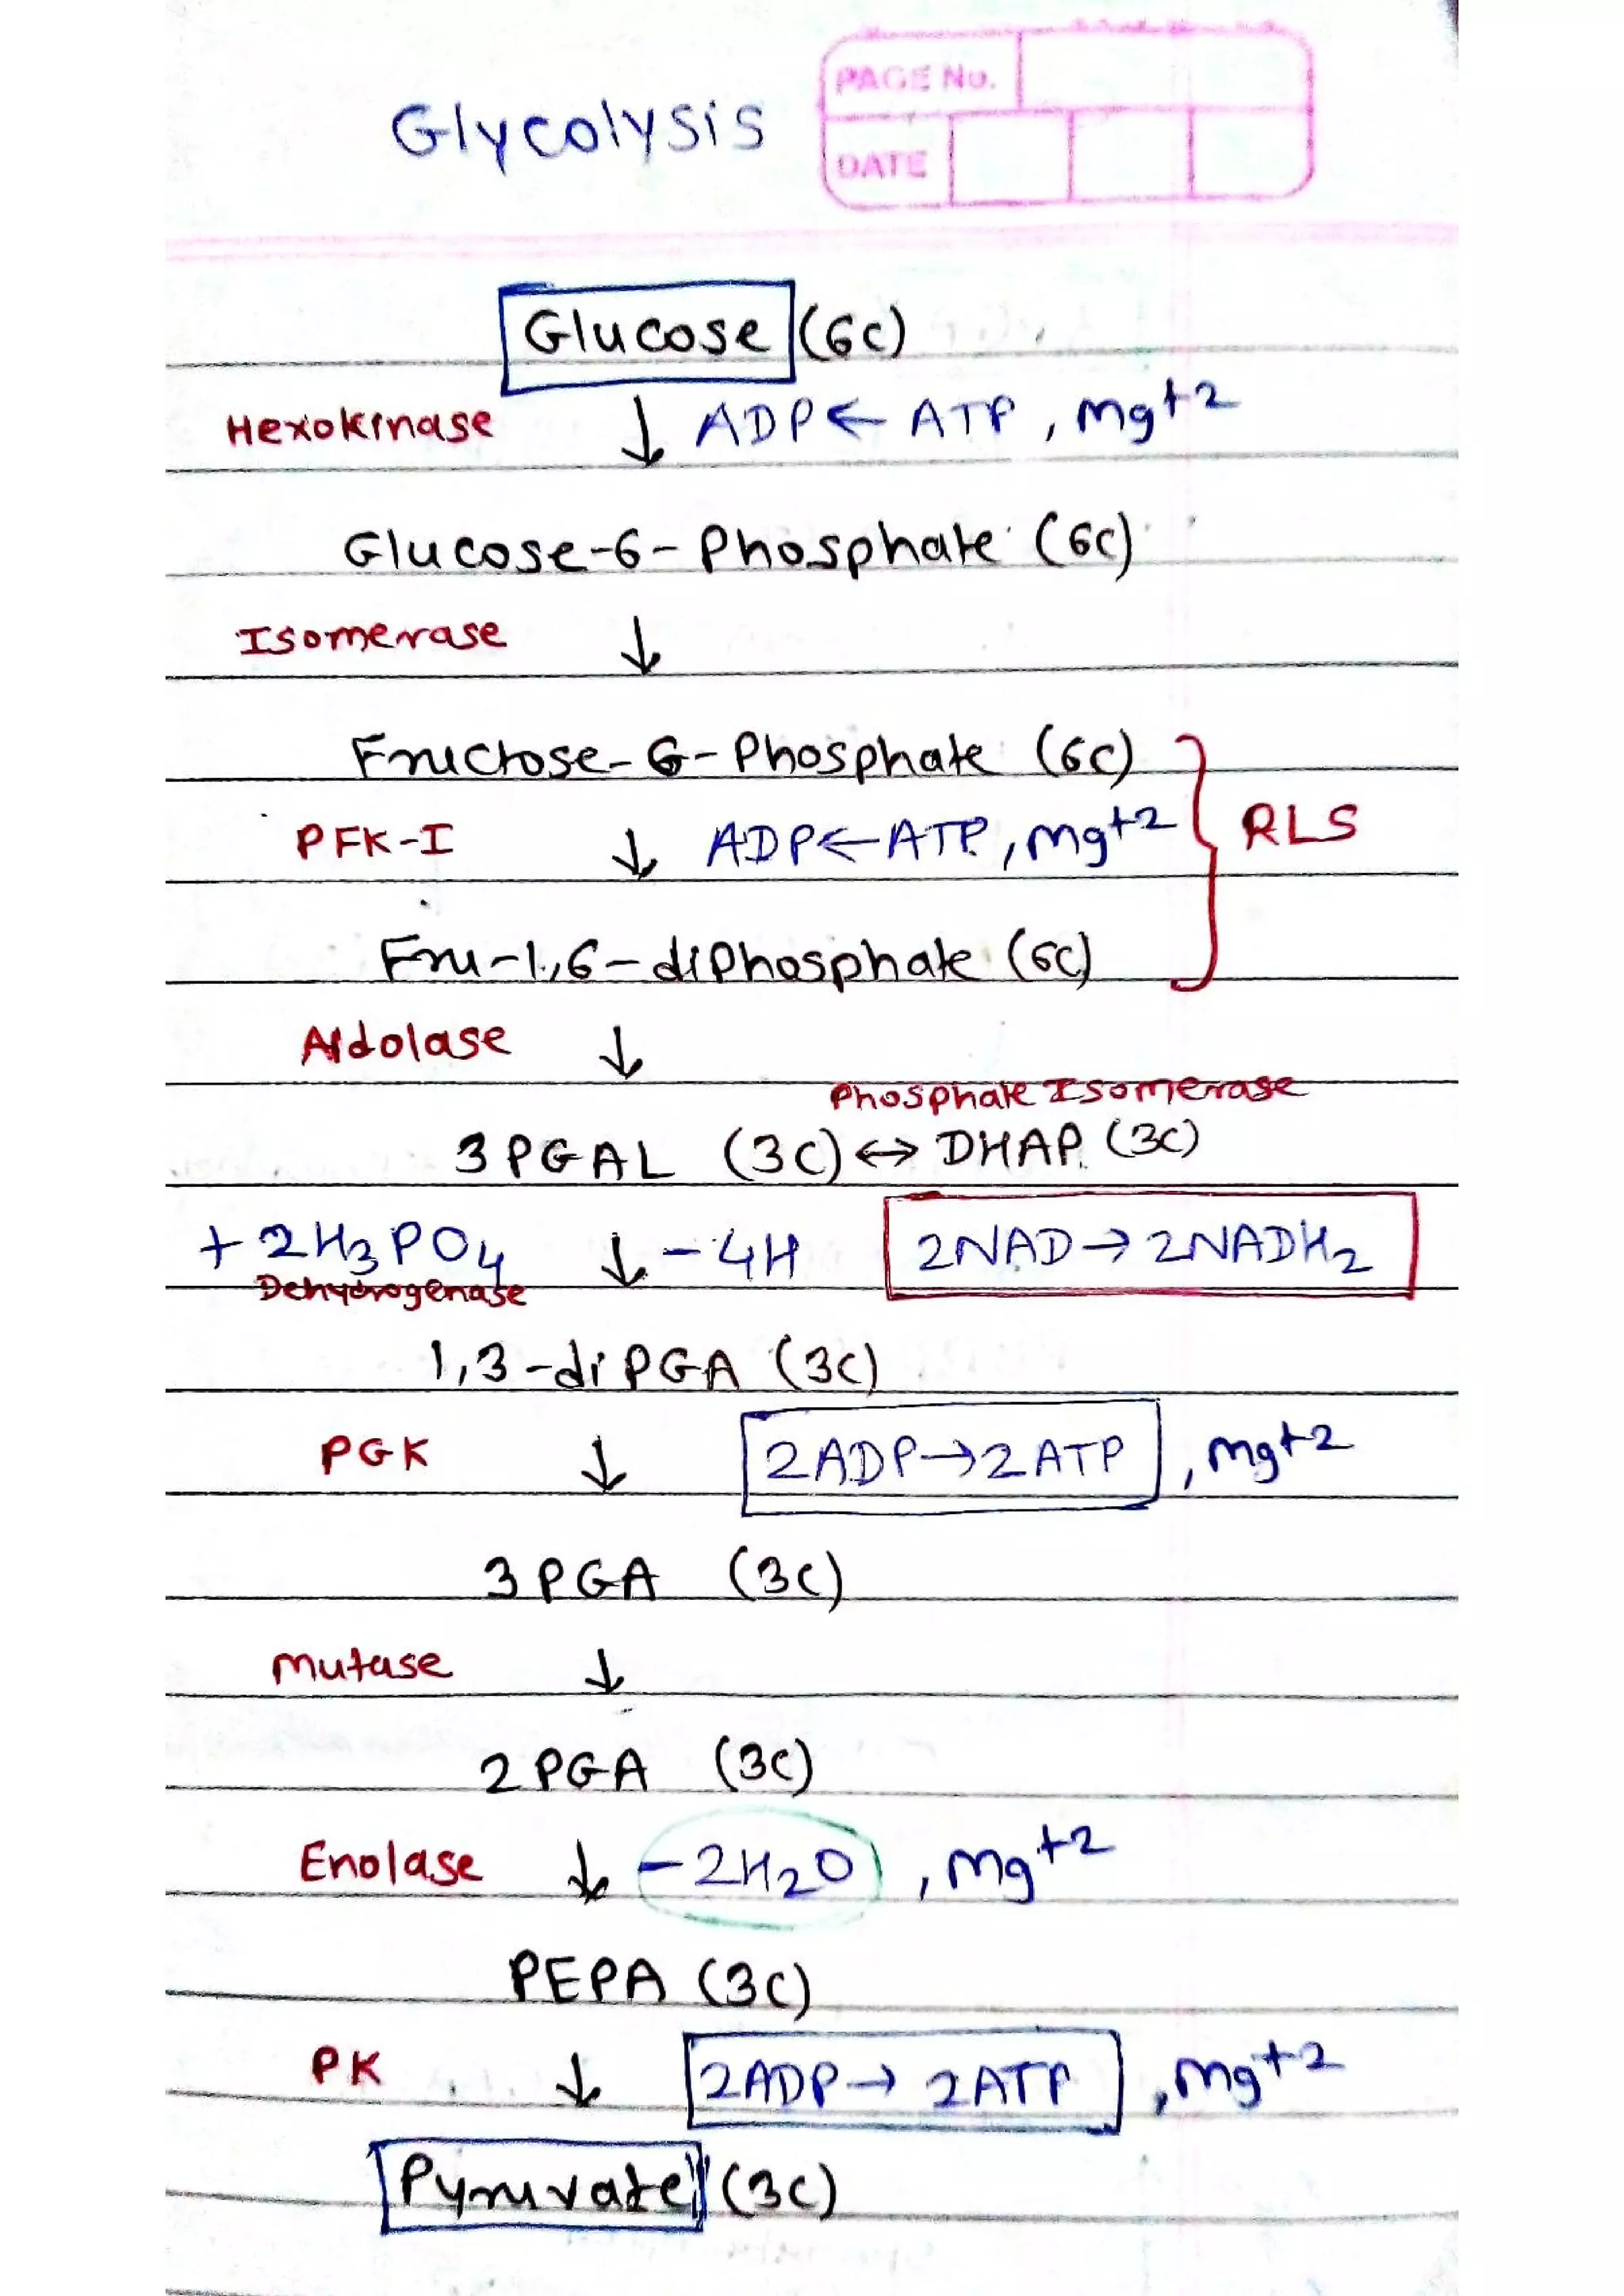 Glycolysis
PAGE No.
DATE
Glucose (6C)
Hexokinase ↓ ADP ← ATP, Mg+2
Glucose-6-Phosphate (6C)
Isomerase ↓
Fructose-6-Phosphate (6C)
PFK-I ↓ ADP ← ATP, Mg+2 RLS
Fru-1,6-diphosphate (6C)
Aldolase ↓
Phosphate Isomerase
3PGAL (3C) ↔ DHAP (3C)
+2H3PO4 ↓ -4H 2NAD → 2NADH2
Dehydrogenase
1,3-diPGA (3C)
PGK ↓ 2ADP → 2ATP, Mg+2
3PGA (3C)
Mutase ↓
2PGA (3C)
Enolase ↓ -2H2O, Mg+2
PEPA (3C)
PK ↓ 2ADP → 2ATP, Mg+2
Pyruvate (3C)